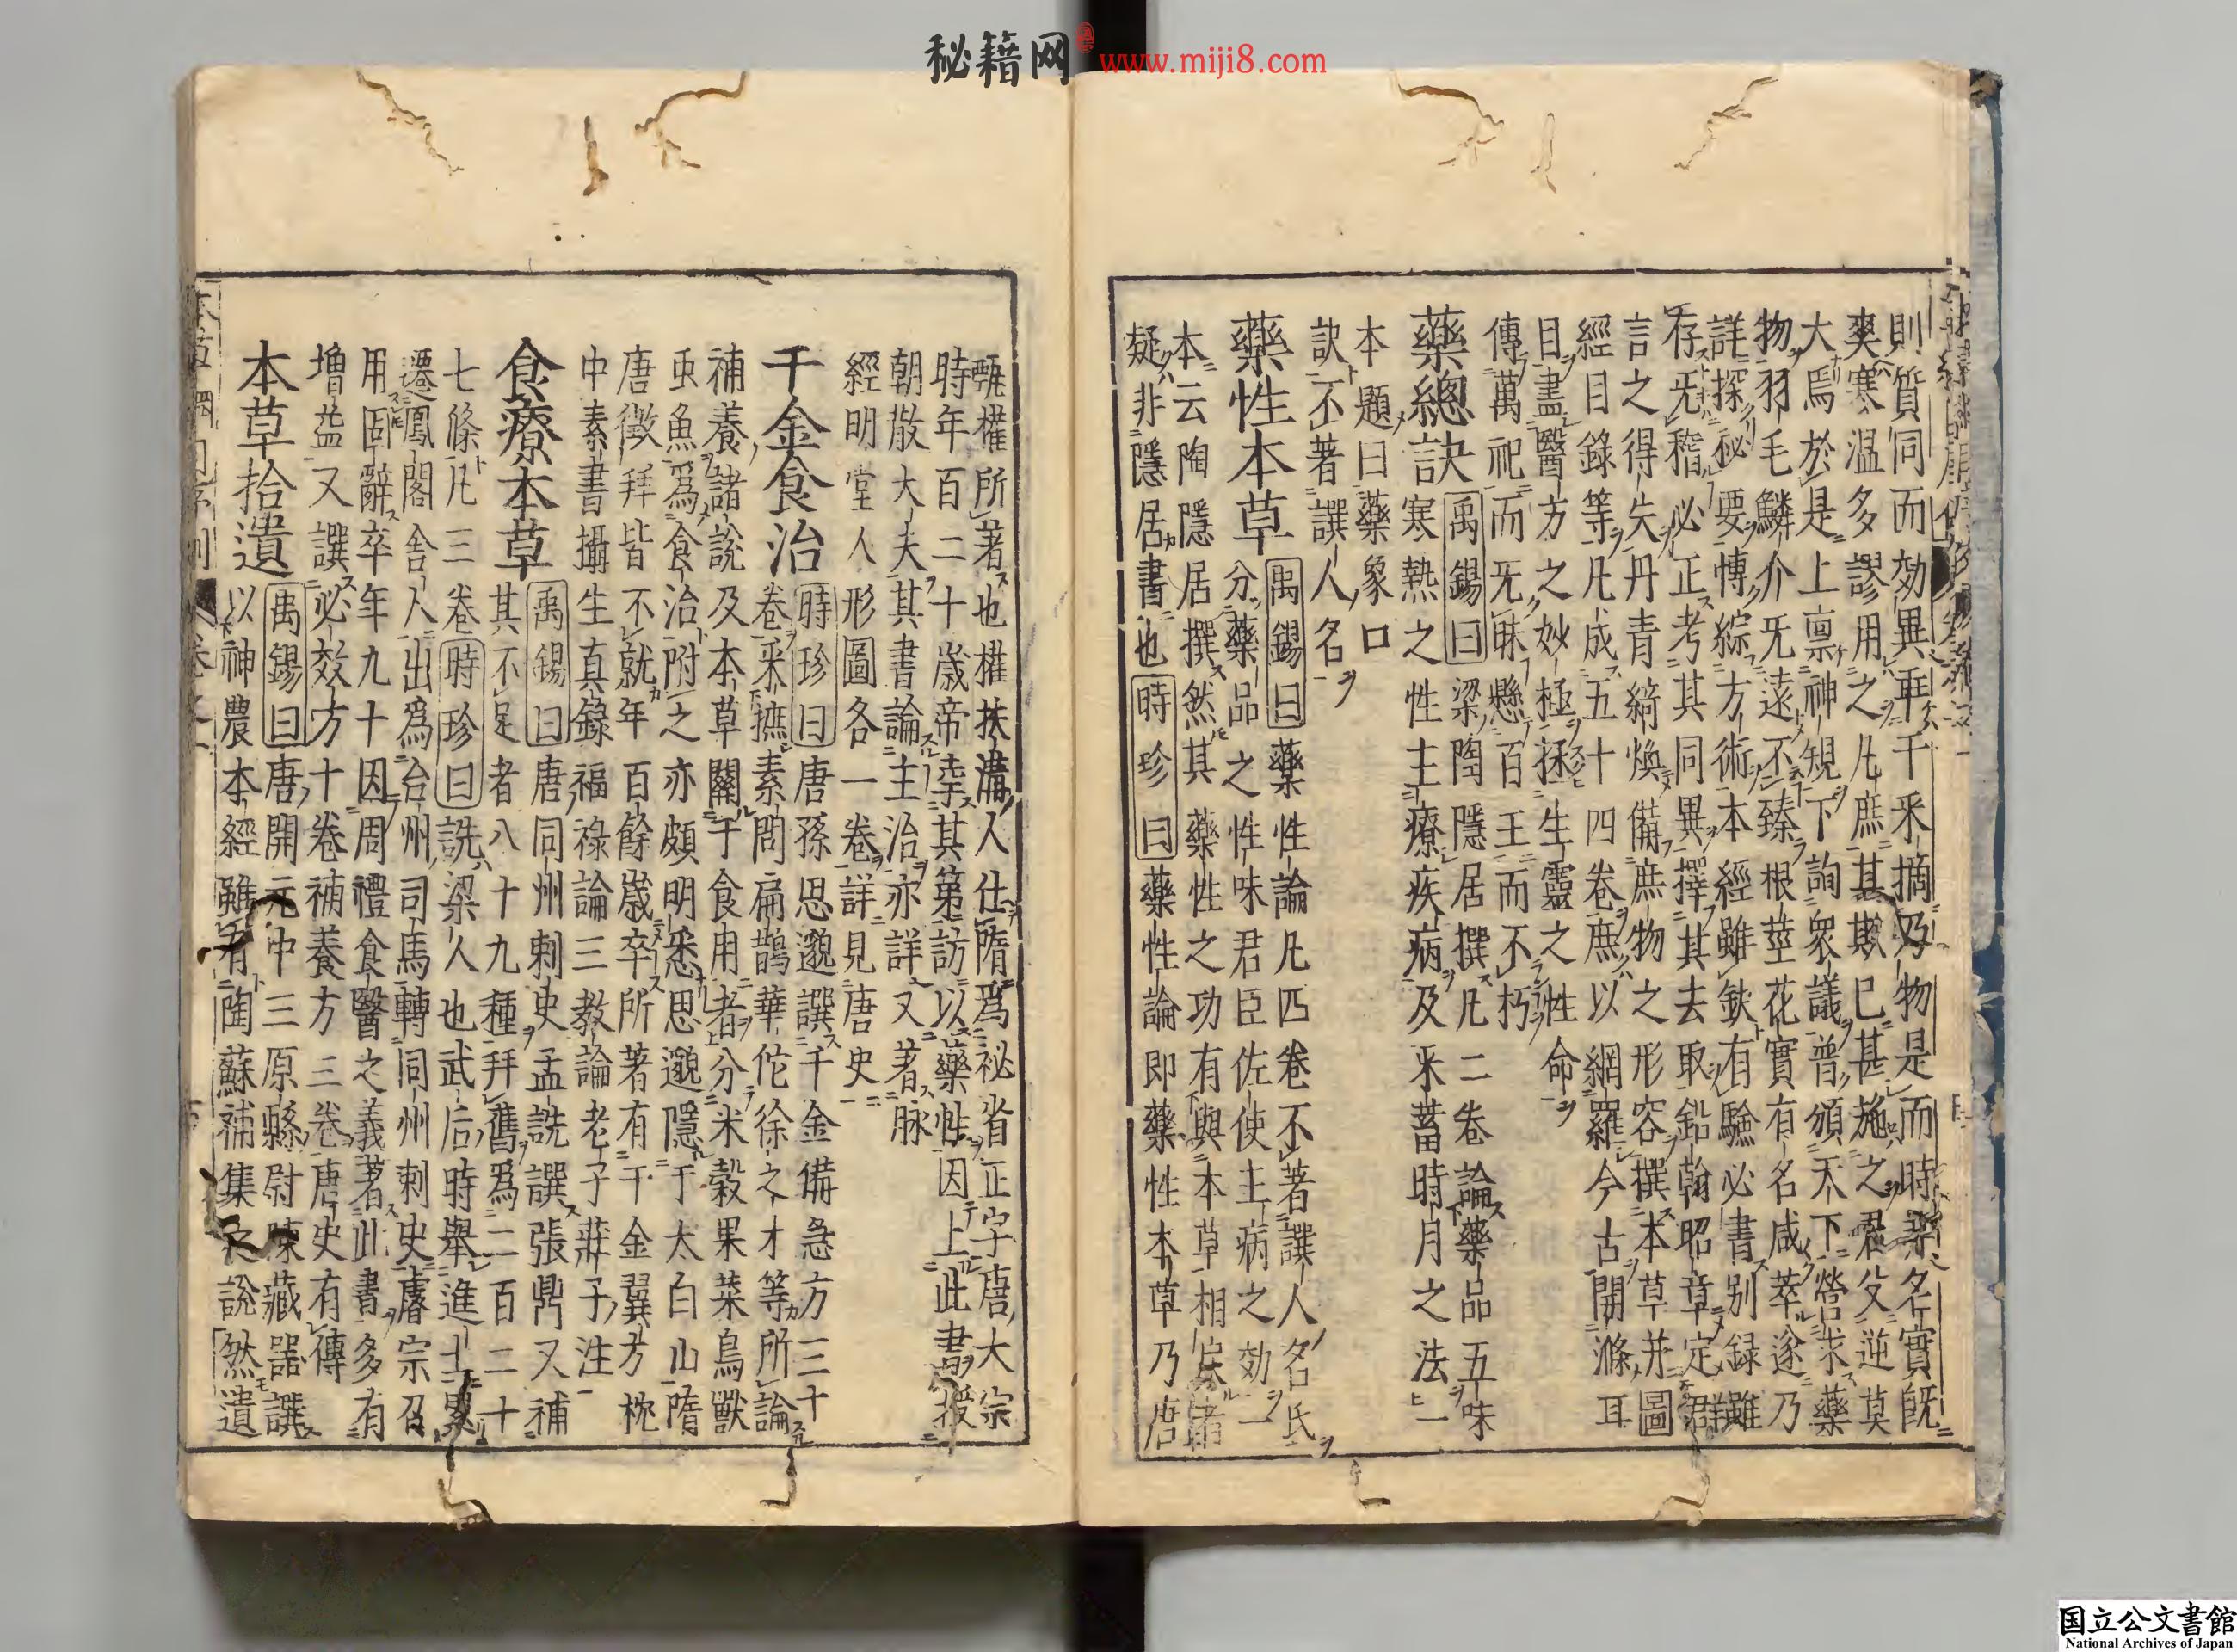 秘籍网 www.miji8.com
則質同而効異乖千采摘乃物是而時非名實既
爽寒温多謬用之凡庶其欺已甚施之君父逆莫
大焉於是上禀神規下詢衆議普頒天下營求藥
物羽毛鱗介旡遠不臻根莖花實有名咸萃遂乃
詳探秘要博綜方術本經雖缺有驗必書别録雖
存旡稽必正考其同異擇其去取鉛翰昭章定群
言之得失丹青綺煥備庶物之形容撰本草并圖
經目錄等凡成五十四卷庶以網羅今古開滌耳
目盡醫方之妙極拯生靈之性命
傳萬祀而旡昧懸百王而不朽
藥總訣 禹錫曰梁陶隱居撰凡二卷論藥品五味
寒熱之性主療疾病及采蓄時月之法一
本題曰藥象口
訣不著譔人名
藥性本草 禹錫曰藥性論凡四卷不著譔人名氏
分藥品之性味君臣佐使主病之効一
本云陶隱居撰然其藥性之功有與本草相戾者
疑非隱居書也時珍曰藥性論即藥性本草乃唐
甄權所著也權扶溝人仕隋爲祕省正字唐太宗
時年百二十歲帝幸其第訪以藥性因上此書授
朝散大夫其書論主治亦詳又著脉
經明堂人形圖各一卷詳見唐史
千金食治 時珍曰唐孫思邈譔千金備急方三十
卷采摭素問扁鵲華佗徐之才等所論
補養諸說及本草關于食用者分米穀果菜鳥獸
虫魚爲食治附之亦頗明悉思邈隱于太白山隋
唐徵拜皆不就年百餘歲卒所著有千金翼方枕
中素書攝生真錄福祿論三教論老子莊子注
食療本草 禹錫曰唐同州刺史孟詵譔張鼎又補
其不足者八十九種并舊爲二百二十
七條凡三卷時珍曰詵梁人也武后時舉進士累
遷鳳閣舍人出爲台州司馬轉同州刺史睿宗召
用固辭卒年九十因周禮食醫之義著此書多有
增益又譔必效方十卷補養方三卷唐史有傳
本草拾遺 禹錫曰唐開元中三原縣尉陳藏噐譔
以神農本經雖有陶蘇補集之說然遺
国立公文書館
National Archives of Japan